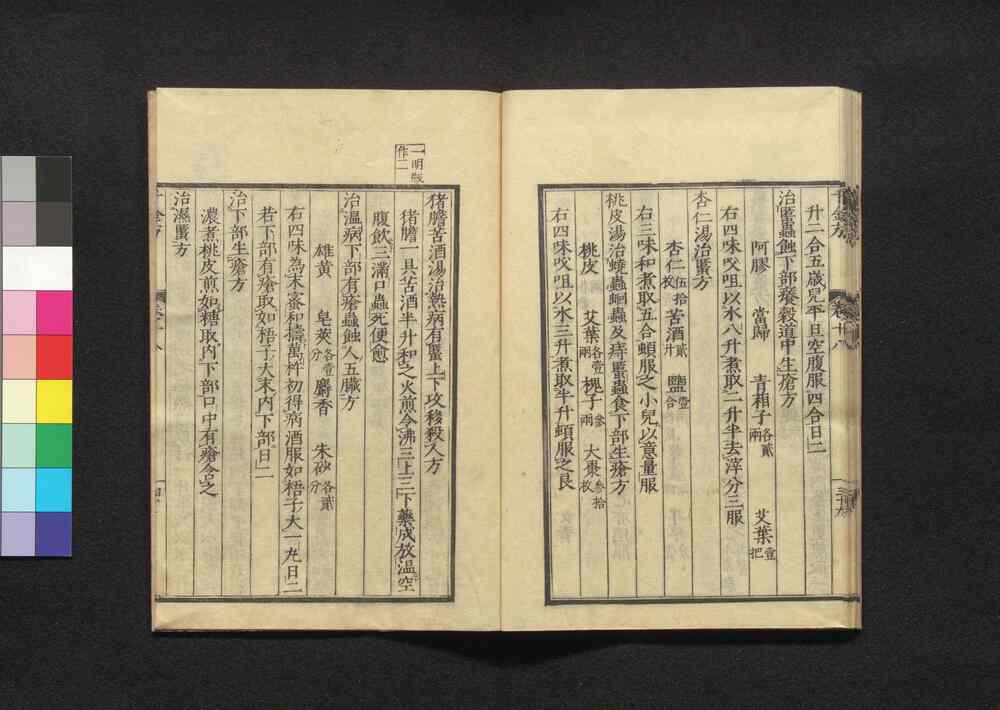 千金方 卷十八
升二合五歲兒平旦空腹服四合日二
治䘌蟲蝕下部癢穀道中生瘡方
阿膠 當歸 青葙子各貳兩 艾葉壹把
右四味㕮咀以水八升煮取二升半去滓分三服
杏仁湯治䘌方
杏仁伍拾枚 苦酒貳升 鹽壹合
右三味和煮取五合頓服之小兒以意量服
桃皮湯治蟯蟲蛔蟲及痔䘌蟲食下部生瘡方
桃皮 艾葉各壹兩 槐子參兩 大棗參拾枚
右四味㕮咀以水三升煮取半升頓服之良
一明版作二
猪膽苦酒湯治熱病有䘌上下攻移殺人方
猪膽一具苦酒半升和之火煎令沸三上三下藥成放溫空
腹飲三滿口蟲死便愈
治溫病下部有瘡蟲蝕人五臟方
雄黃 皂莢各壹分 麝香 朱砂各貳分
右四味為末蜜和擣萬杵初得病酒服如梧子大一丸日二
若下部有瘡取如梧子大末內下部日二
治下部生瘡方
濃煮桃皮煎如糖取內下部口中有瘡含之
治濕䘌方